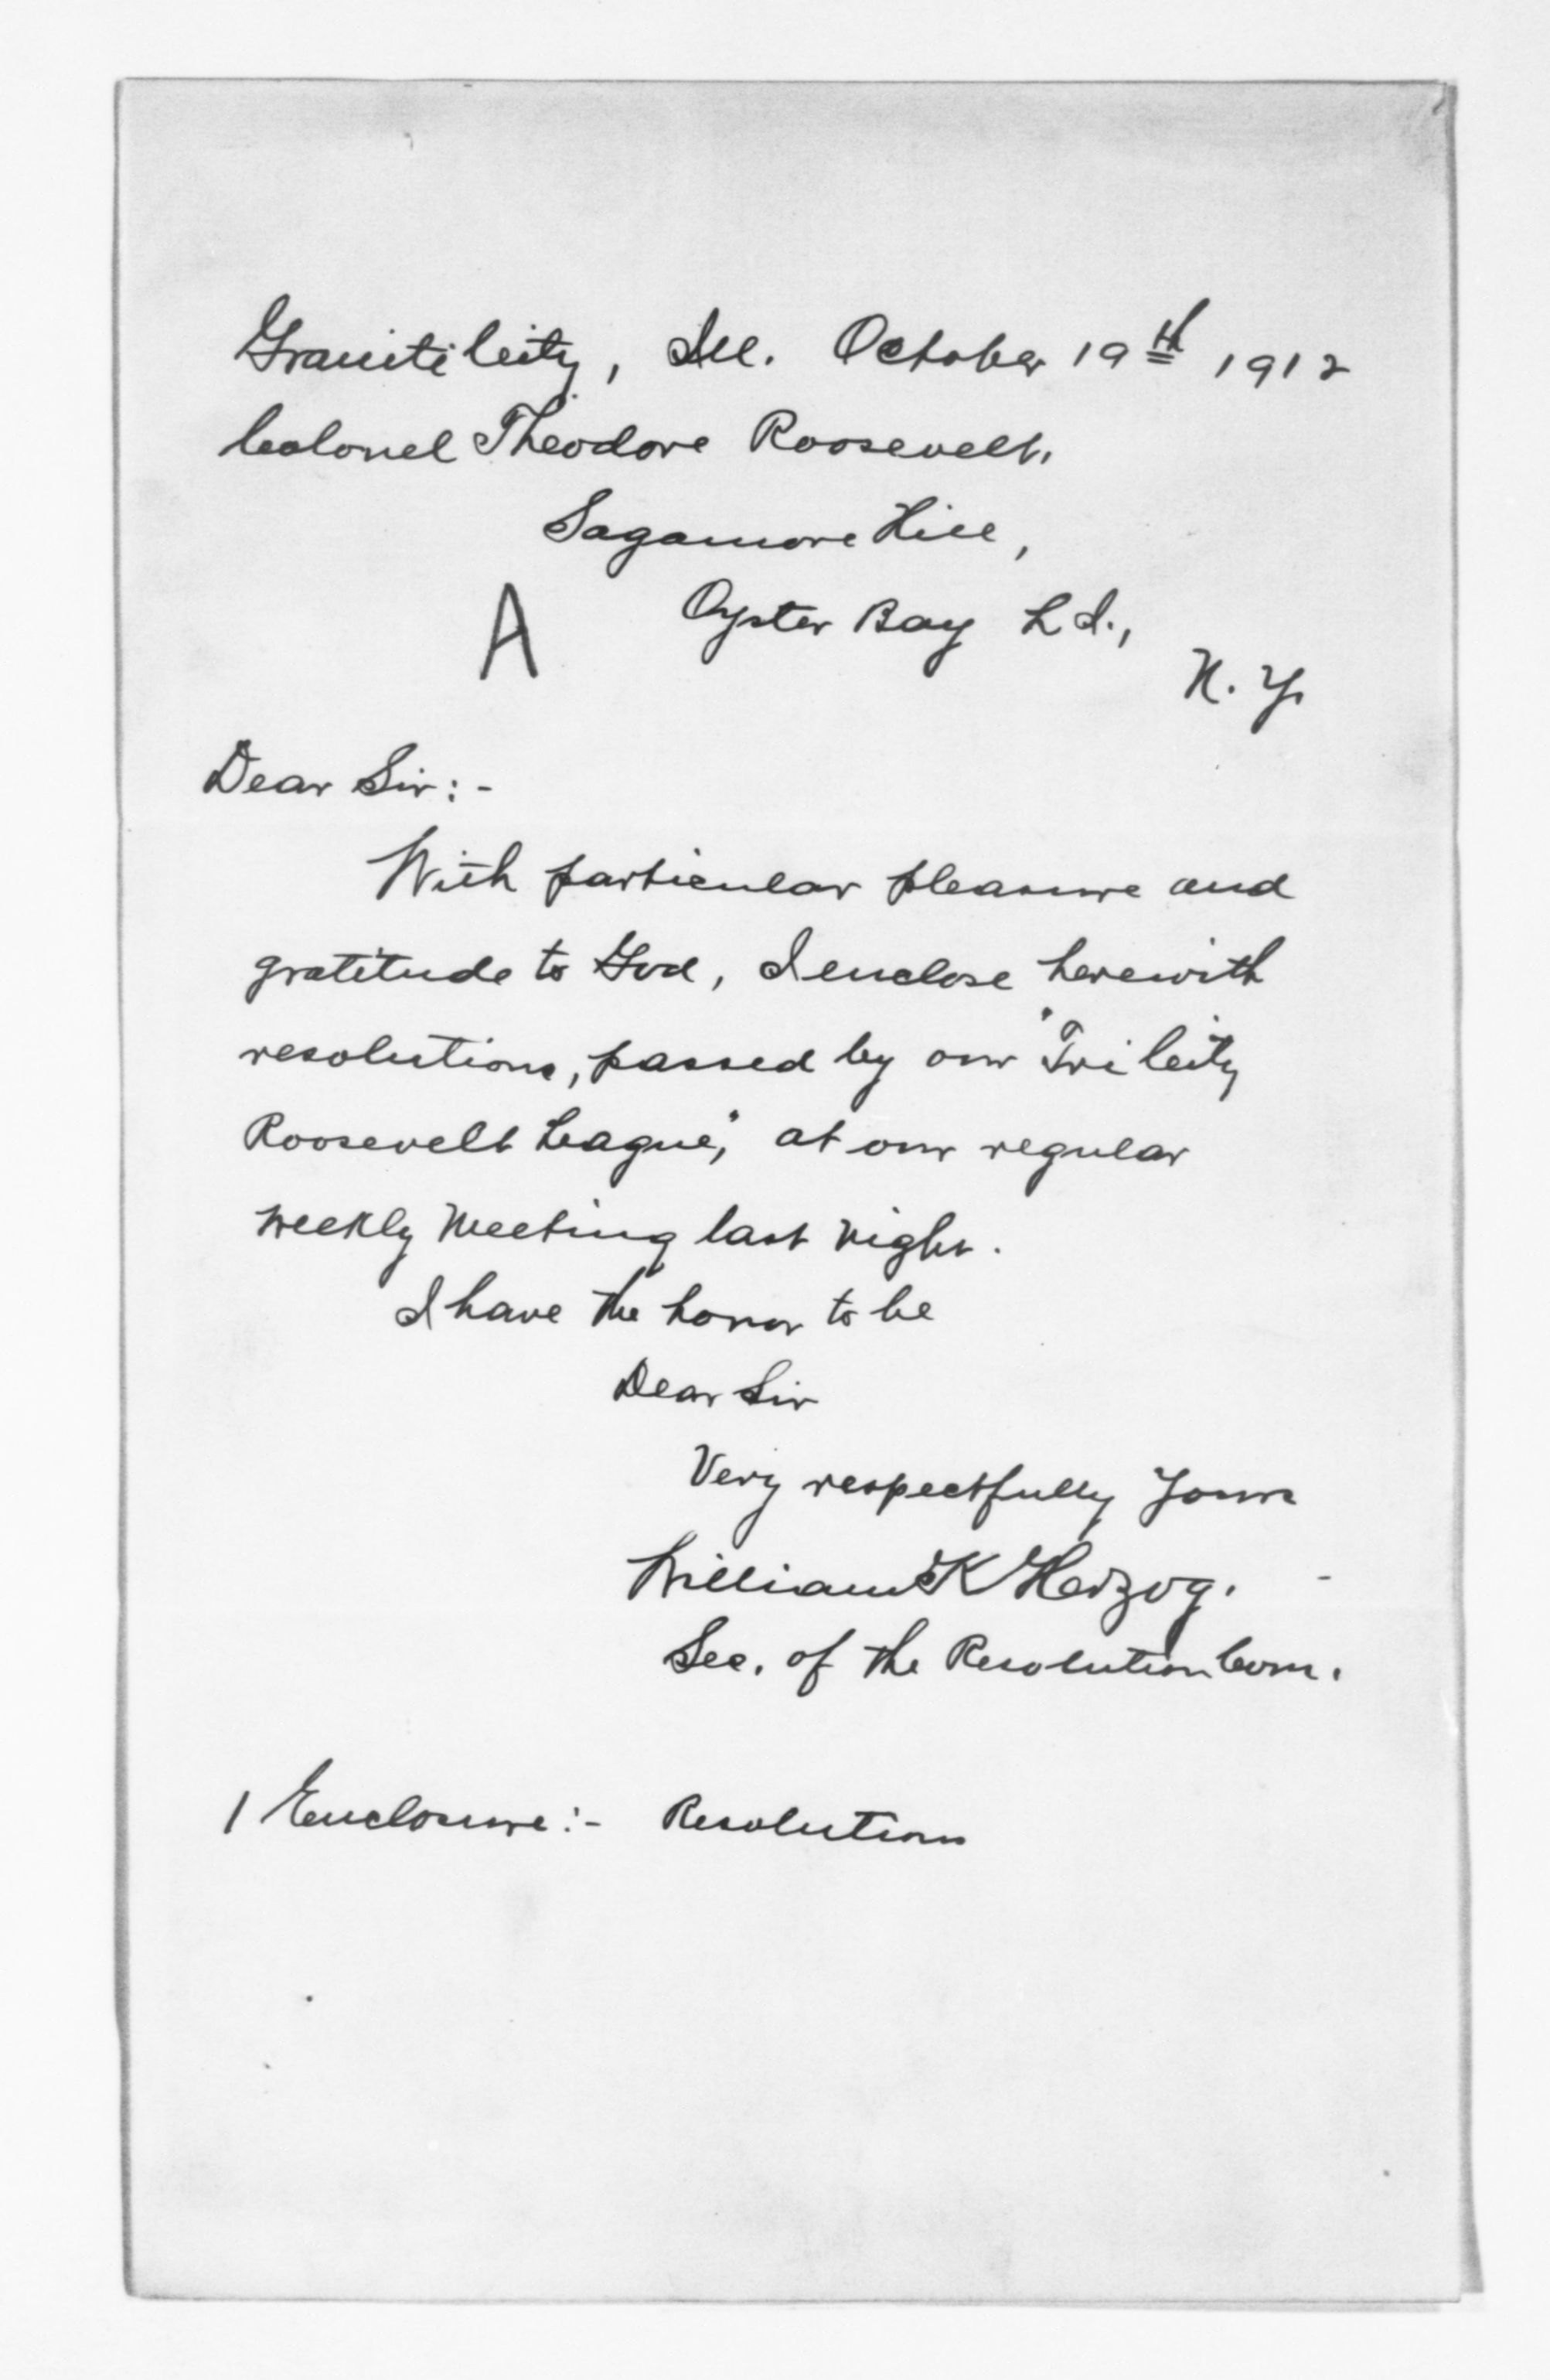 Granite City, Ill. October 19th 1912
Colonel Theodore Roosevelt.
Sagamore Hill,
A Oyster Bay L I.,
N. Y.
Dear Sir:-
With particular pleasure and
gratitude to God, I enclose herewith
resolutions, passed by our "Tri City
Roosevelt League," at our regular
weekly meeting last night.
I have the honor to be
Dear Sir
Very respectfully Yours
William K Herzog.
Sec. of the Resolution Com.
1 Enclosure:- Resolutions